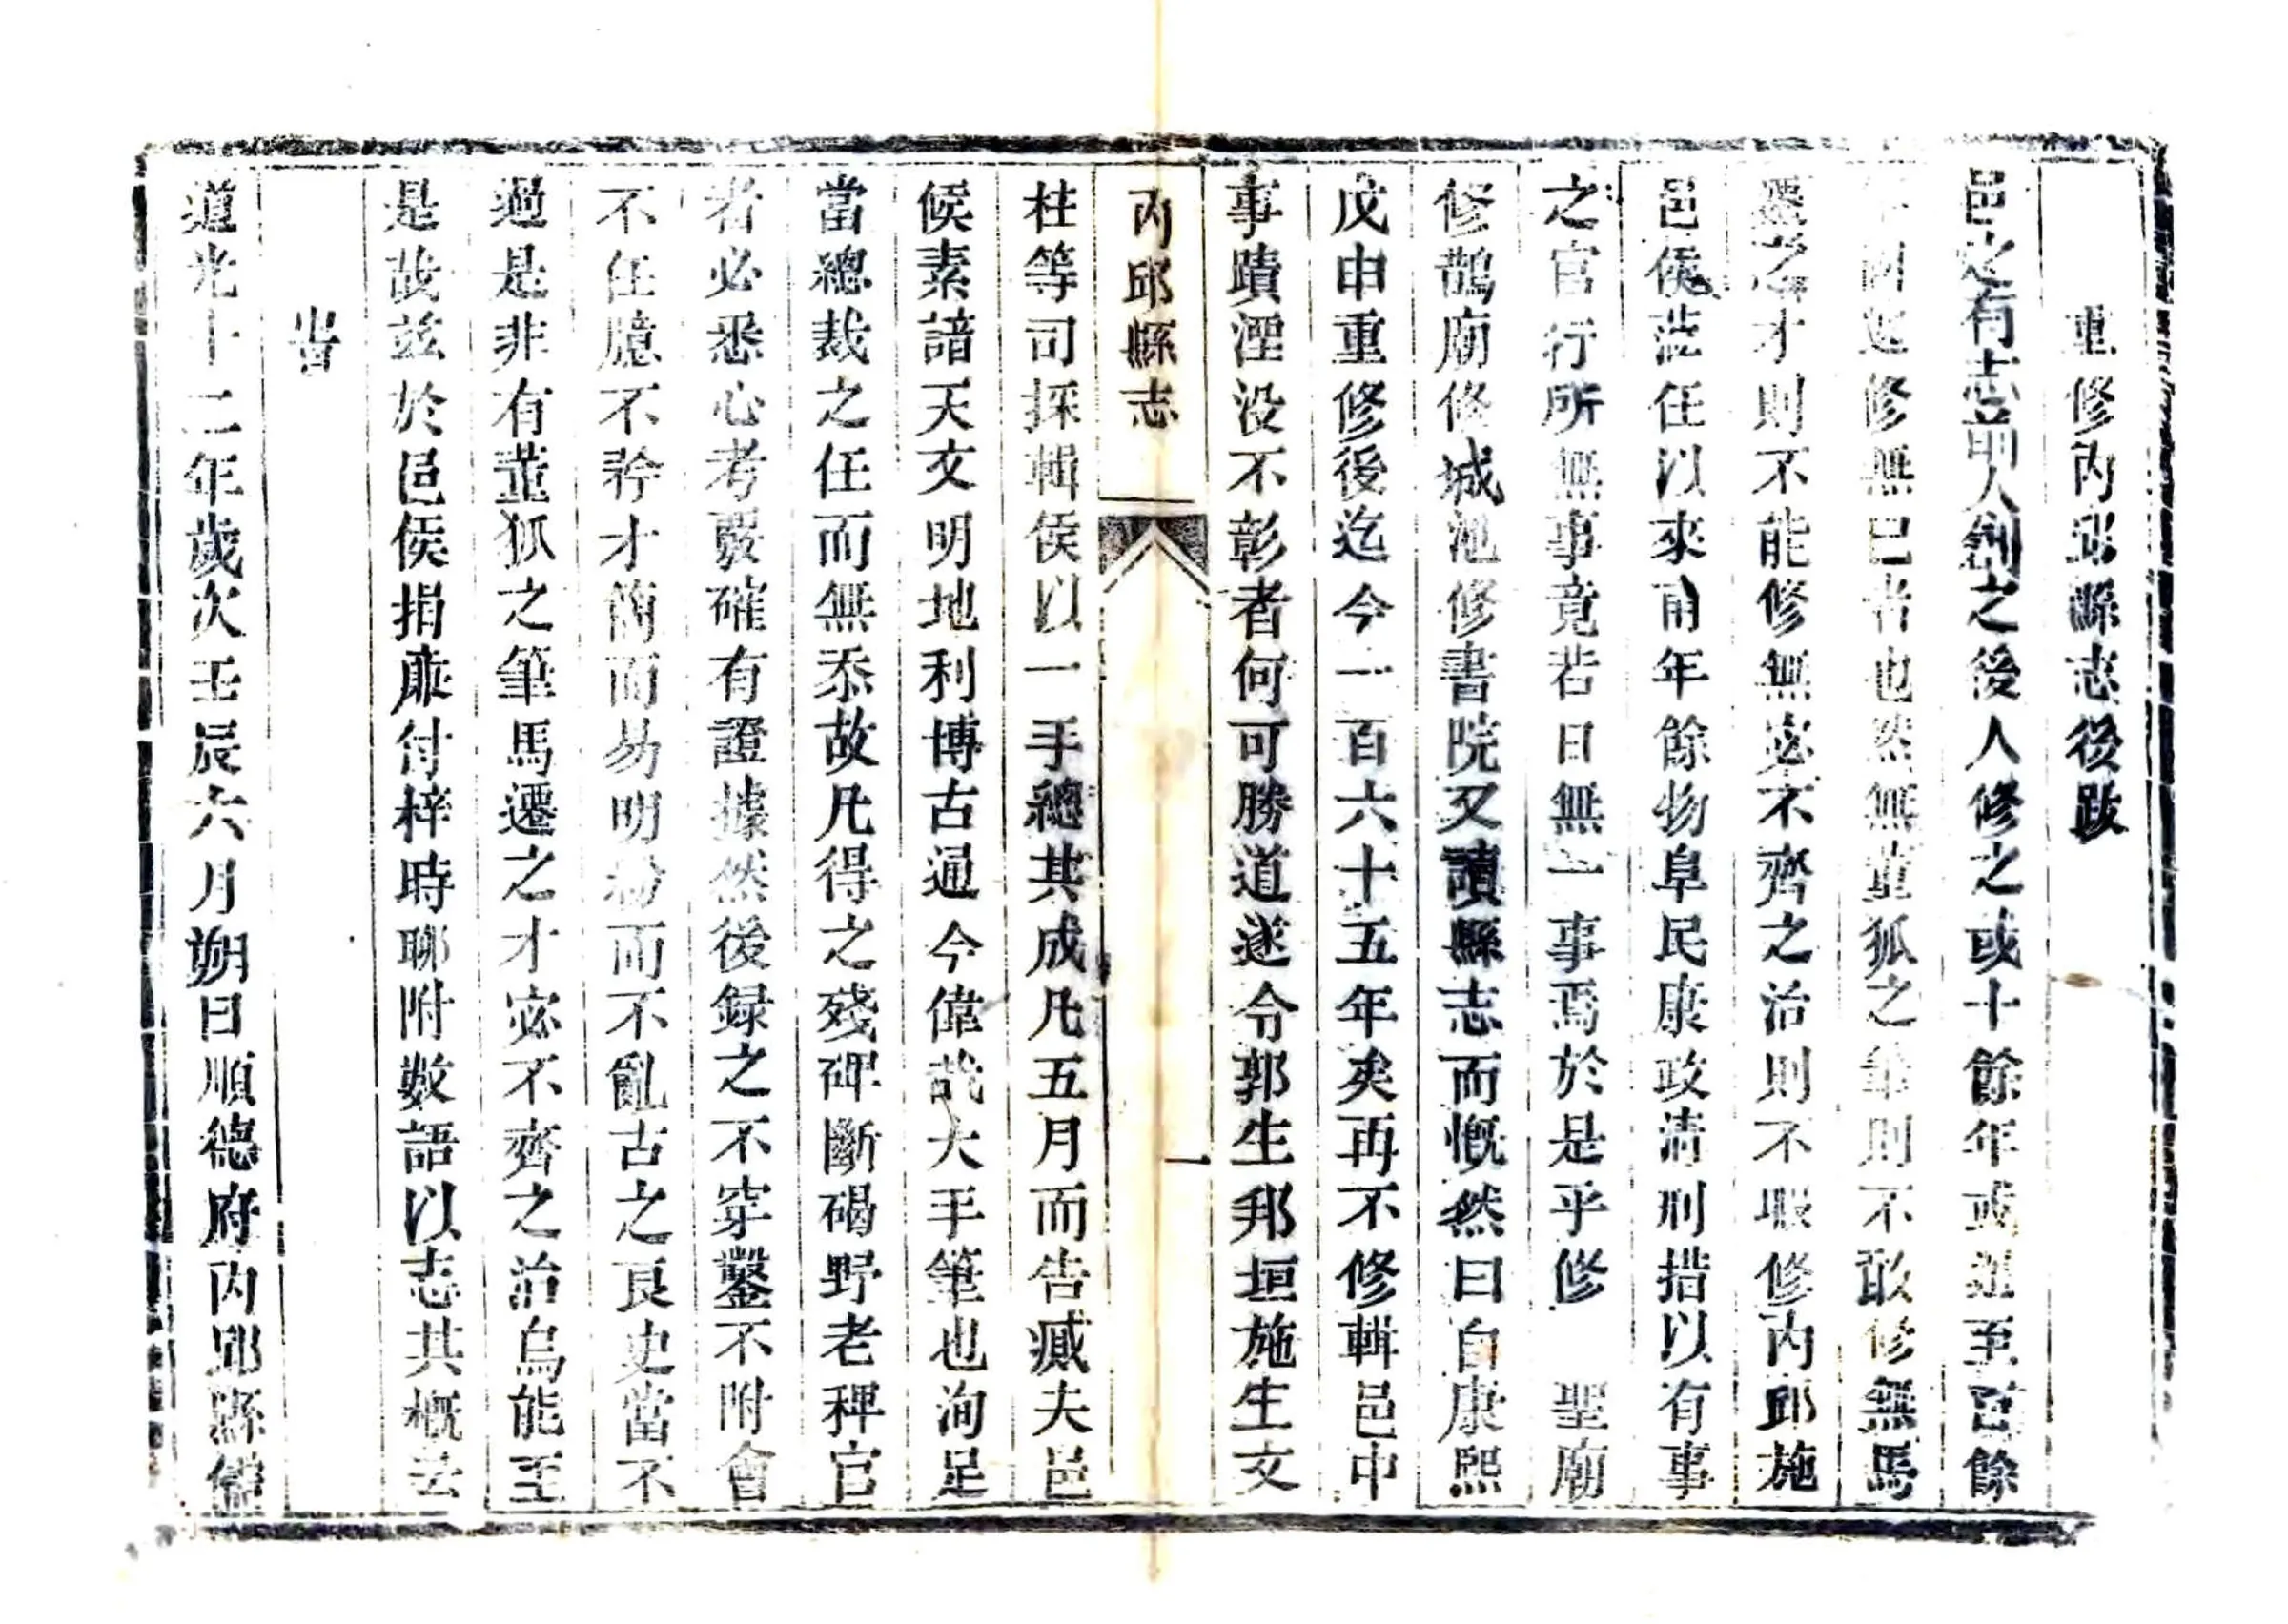 重修內邱縣志後跋
邑之有志前人創之後人修之或十餘年或遲至百餘
年而返修無已者也然無董狐之筆則不敢修無馬
遷之才則不能修無宓不齊之治則不暇修內邱施
邑侯蒞任以來甫年餘物阜民康政淸刑措以有事
之官行所無事竟若日無一事焉於是乎修　聖廟
修鵲廟修城池修書院又讀縣志而慨然曰自康熙
戊申重修後迄今一百六十五年矣再不修輯邑中
事蹟湮没不彰者何可勝道遂令郭生邦垣施生文
內邱縣志
一
柱等司採輯侯以一手總其成凡五月而告臧夫邑
侯素諳天文明地利博古通今偉哉大手筆也洵足
當總裁之任而無忝故凡得之殘碑斷碣野老稗官
者必悉心考覈確有證據然後録之不穿鑿不附會
不任臆不矜才簡而易明粉而不亂古之良史當不
過是非有董狐之筆馬遷之才宓不齊之治烏能至
是故兹於邑侯捐廉付梓時聊附數語以志其概云
旹
道光十二年歲次壬辰六月朔日順德府內邱縣儒